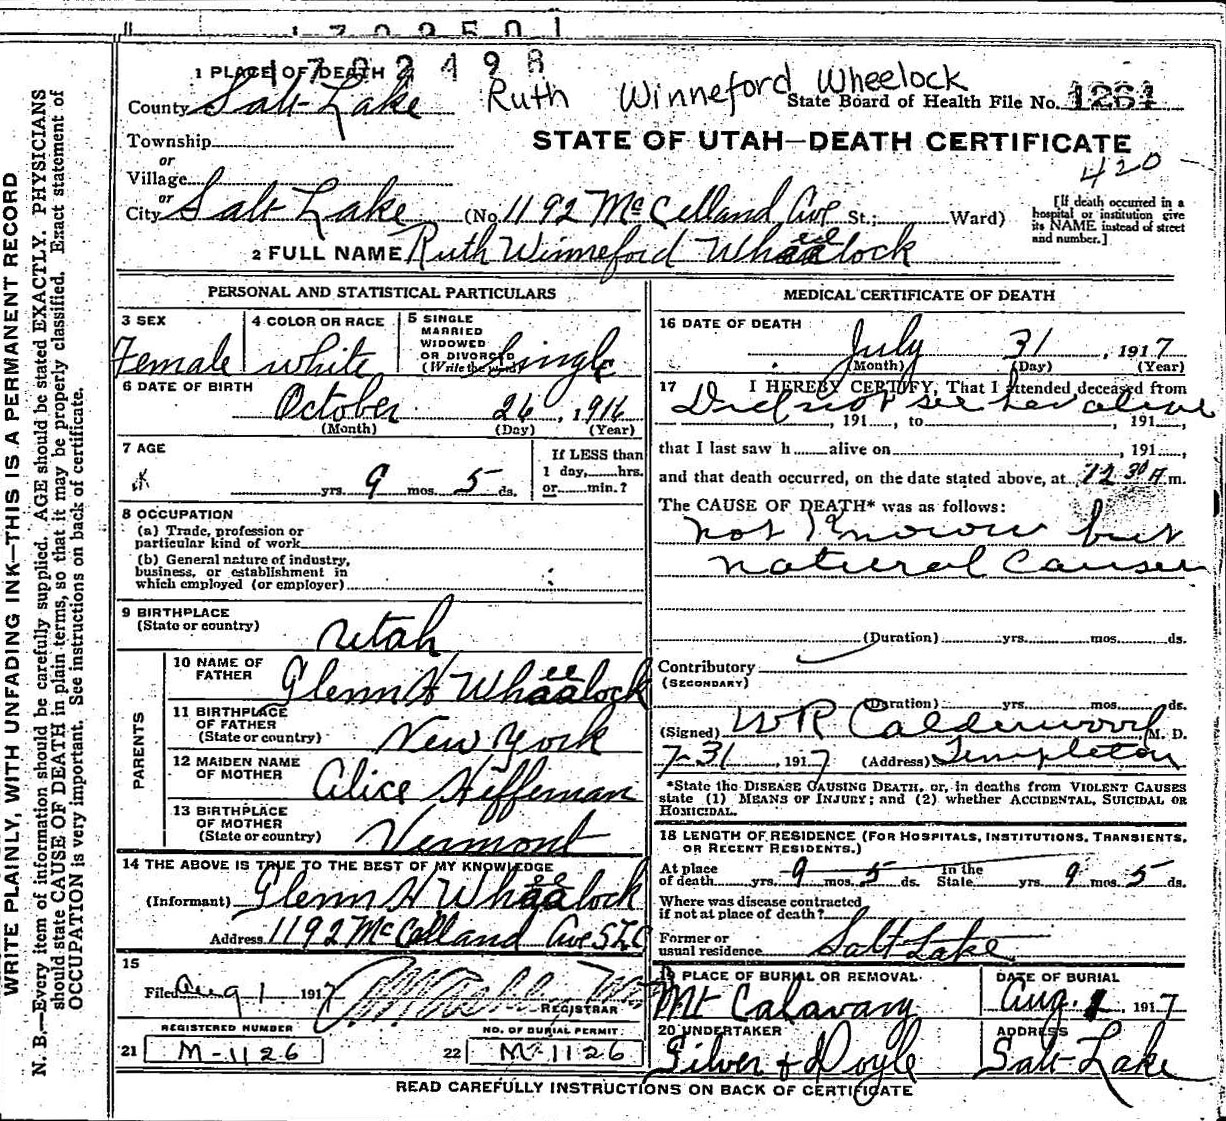 1702501
1702498
1 PLACE OF DEATH
County Salt Lake Ruth Winneford Wheelock State Board of Health File No. 1261
Township
or
Village
or
STATE OF UTAH—DEATH CERTIFICATE
420
City Salt Lake (No. 1192 McCelland Ave St.; Ward)
[If death occurred in a hospital or institution give its NAME instead of street and number.]
2 FULL NAME Ruth Winneford Wheelock
PERSONAL AND STATISTICAL PARTICULARS
3 SEX Female
4 COLOR OR RACE white
5 SINGLE MARRIED WIDOWED OR DIVORCED (Write the word) Single
6 DATE OF BIRTH
October 26, 1916
(Month) (Day) (Year)
7 AGE
yrs. 9 mos. 5 ds.
If LESS than 1 day, hrs. or min.?
8 OCCUPATION
(a) Trade, profession or particular kind of work
(b) General nature of industry, business, or establishment in which employed (or employer)
9 BIRTHPLACE
(State or country) Utah
PARENTS
10 NAME OF FATHER Glenn H Wheelock
11 BIRTHPLACE OF FATHER (State or country) New York
12 MAIDEN NAME OF MOTHER Alice Heffernan
13 BIRTHPLACE OF MOTHER (State or country) Vermont
14 THE ABOVE IS TRUE TO THE BEST OF MY KNOWLEDGE
(Informant) Glenn H Wheelock
Address 1192 McCelland Ave SLC
15
Filed Aug 1 1917
REGISTRAR
REGISTERED NUMBER NO. OF BURIAL PERMIT.
21 M-1126 22 M-1126
MEDICAL CERTIFICATE OF DEATH
16 DATE OF DEATH
July 31, 1917
(Month) (Day) (Year)
17 I HEREBY CERTIFY, That I attended deceased from
Did not see her alive
, 191 , to , 191 ,
that I last saw h alive on , 191 ,
and that death occurred, on the date stated above, at 12 30 A m.
The CAUSE OF DEATH* was as follows:
not Known but
natural Causes
(Duration) yrs. mos. ds.
Contributory
(SECONDARY)
(Duration) yrs. mos. ds.
(Signed) W R Calderwood M. D.
7-31, 1917 (Address) Templeton
*State the DISEASE CAUSING DEATH, or, in deaths from VIOLENT CAUSES
state (1) MEANS OF INJURY; and (2) whether ACCIDENTAL, SUICIDAL OR
HOMICIDAL.
18 LENGTH OF RESIDENCE (FOR HOSPITALS, INSTITUTIONS, TRANSIENTS,
OR RECENT RESIDENTS.)
At place of death yrs. 9 mos. 5 ds. In the State yrs. 9 mos. 5 ds.
Where was disease contracted
if not at place of death?
Former or
usual residence Salt Lake
19 PLACE OF BURIAL OR REMOVAL DATE OF BURIAL
Mt Calavary Aug. 1, 1917
20 UNDERTAKER ADDRESS
Gilver & Doyle Salt Lake
READ CAREFULLY INSTRUCTIONS ON BACK OF CERTIFICATE
WRITE PLAINLY, WITH UNFADING INK—THIS IS A PERMANENT RECORD
N. B.—Every item of information should be carefully supplied. AGE should be stated EXACTLY. PHYSICIANS
should state CAUSE OF DEATH in plain terms, so that it may be properly classified. Exact statement of
OCCUPATION is very important. See instructions on back of certificate.